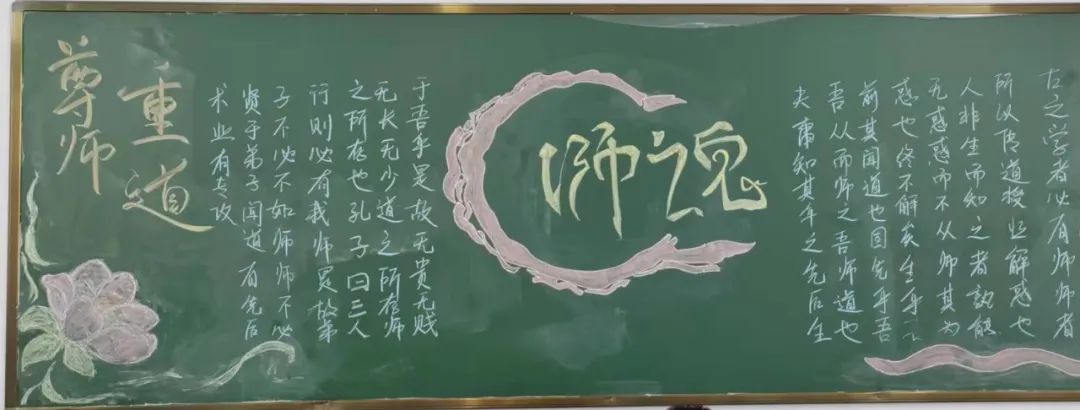 古之学者必有师师者
所以传道授业解惑也
人非生而知之者孰能
无惑惑而不从师其为
惑也终不解矣生乎
前其闻道也固先乎吾
吾从而师之吾师道也
夫庸知其年之先后生
师魂
于吾乎是故无贵无贱
无长无少道之所存师
之所存也孔子曰三人
行则必有我师是故弟
子不必不如师师不必
贤于弟子闻道有先后
术业有专攻
尊师
重道